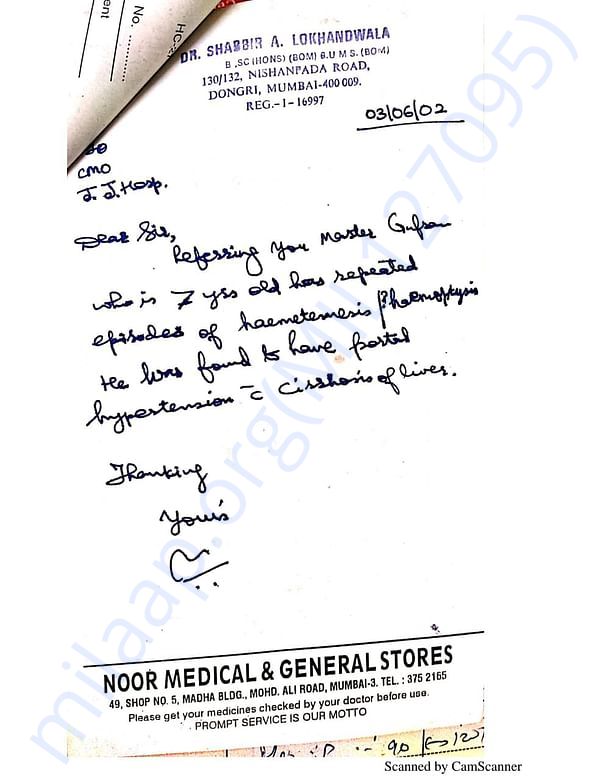 ent
No.
HC-
DR. SHABBIR A. LOKHANDWALA
B.SC (HONS) (BOM) B.U M S. (BOM)
130/132, NISHANPADA ROAD,
DONGRI, MUMBAI-400 009.
REG.-1-16997
03/06/02
CMO
J. J. Hosp.
Dear Sir,
Referring you Master Gufran
who is 7 yrs old has repeated
episodes of haemetemesis / ? haemoptysis
He was found to have portal
hypertension c̄ cirrhosis of liver.
Thanking
Yours
NOOR MEDICAL & GENERAL STORES
49, SHOP NO. 5, MADHA BLDG., MOHD. ALI ROAD, MUMBAI-3. TEL. : 375 2165
Please get your medicines checked by your doctor before use.
PROMPT SERVICE IS OUR MOTTO
90
Scanned by CamScanner
milaap.org(MIL-127095)